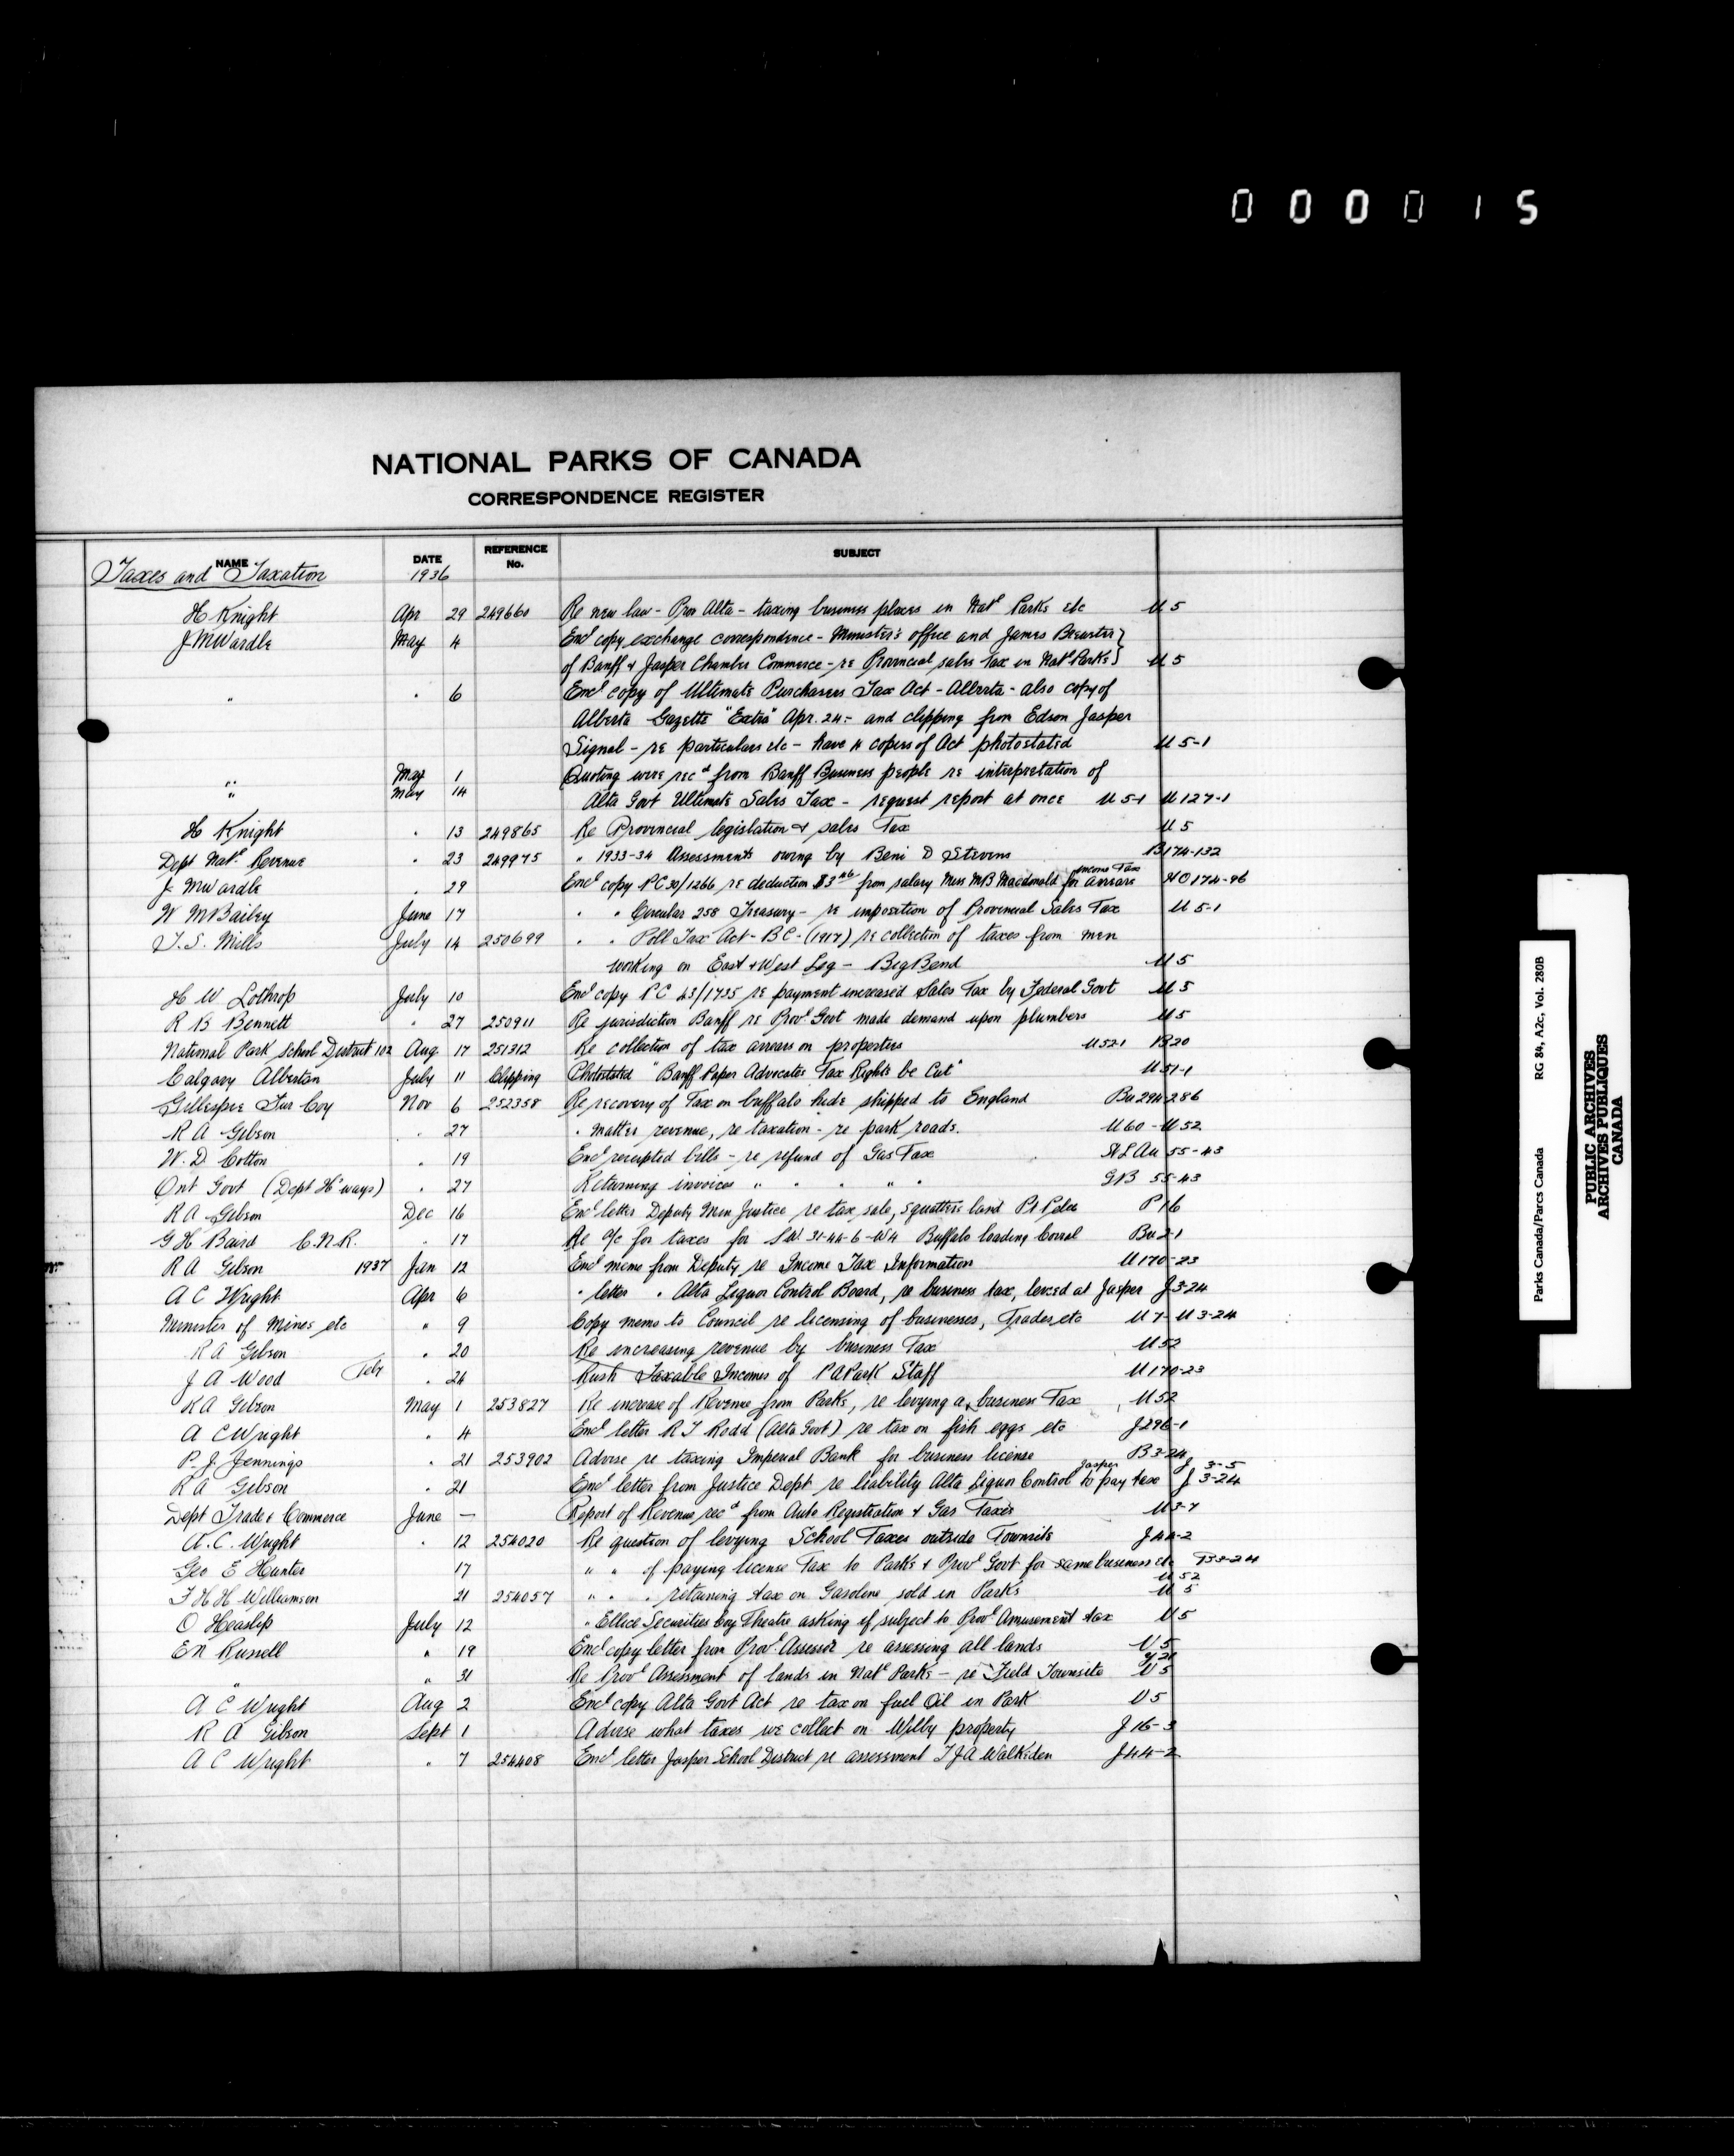 000015
NATIONAL PARKS OF CANADA
CORRESPONDENCE REGISTER
NAME DATE REFERENCE No. SUBJECT
Taxes and Taxation 1936
H Knight Apr 29 249660 Re new law - Prov Alta - taxing business places in Natl Parks etc U 5
J M Wardle May 4 Encl copy exchange correspondence - Minister's office and James Brewster }
of Banff & Jasper Chamber Commerce - re Provincial sales tax in Natl Parks } U 5
" . 6 Encl copy of Ultimate Purchasers Tax Act - Alberta - also copy of
Alberta Gazette "Extra" Apr. 24 - and clipping from Edson Jasper
Signal - re particulars etc - have 4 copies of Act photostated U 5-1
" May 1 Quoting wire recd from Banff Business people re interpretation of
" May 14 Alta Govt Ultimate Sales Tax - request report at once U 5-1 U 127-1
H Knight . 13 249865 Re Provincial legislation & sales Tax U 5
Dept Natl Revenue . 23 249975 " 1933-34 Assessments owing by Beni D Stevens B174-132
J M Wardle . 29 Encl copy PC 30/1266 re deduction from salary Miss MB Macdonald for Income Tax arrears HO 174-96
W M Bailey June 17 . . Circular 258 Treasury - re imposition of Provincial Sales Tax U 5-1
T. S. Mills July 14 250699 . . Poll Tax Act - BC - (1917) re collection of taxes from men
working on East & West Leg - Big Bend U 5
H W Lothrop July 10 Encl copy PC 43/1735 re payment increased Sales Tax by Federal Govt U 5
R B Bennett . 27 250911 Re jurisdiction Banff re Provl Govt made demand upon plumbers U 5
National Park School District 102 Aug 17 251312 Re collection of tax arrears on properties U 52-1 B20
Calgary Albertan July 11 Clipping Photostated "Banff Paper Advocates Tax Rights be Cut" U 51-1
Gillespie Fur Coy Nov 6 252358 Re recovery of Tax on buffalo hide shipped to England Bu 294-286
R A Gibson . 27 . matter revenue, re taxation - re park roads. U 60 - U 52
W. D. Cotton . 19 Encl receipted bills - re refund of Gas Tax 55-43
Ont Govt (Dept H'ways) . 27 Returning invoices " . . " . GB 55-43
R A Gibson Dec 16 Encl letter Deputy Min Justice re tax sale, squatters land Pt Pelee P 16
G H Baird C.N.R. . 17 Re a/c for taxes for SW 31-44-6-W4 Buffalo loading Corral Bu 2-1
R A Gibson 1937 Jan 12 Encl memo from Deputy re Income Tax Information U 170-23
A C Wright Apr 6 . letter . Alta Liquor Control Board, re business tax, levied at Jasper J 3-24
Minister of Mines etc " 9 Copy memo to Council re licensing of businesses, Trades etc U 7 - U 3-24
R A Gibson . 20 Re increasing revenue by business Tax U 52
J A Wood Feby . 24 Rush Taxable Incomes of PA Park Staff U 170-23
R A Gibson May 1 253827 Re increase of Revenue from Parks, re levying a business Tax U 52
A C Wright . 4 Encl letter R J Rodd (Alta Govt) re tax on fish eggs etc J 296-1
P. J. Jennings . 21 253902 Advise re taxing Imperial Bank for business license B 3-24
R A Gibson . 21 Encl letter from Justice Dept re liability Alta Liquor Control Jasper to pay taxe J 3-5 J 3-24
Dept Trade & Commerce June — Report of Revenue recd from Auto Registration & Gas Taxes U 3-7
A. C. Wright . 12 254020 Re question of levying School Taxes outside Townsite J 44-2
Geo E Hunter 17 " " of paying license Tax to Parks & Provl Govt for same business etc B3-24 U 52
F H H Williamson 21 254057 " . . retaining tax on Gasoline sold in Parks U 5
O Heaslip July 12 " Ellice Securities Coy Theatre asking if subject to Provl Amusement tax U 5
E N Russell " 19 Encl copy letter from Provl Assessor re assessing all lands U 5
" " 31 Re Provl Assessment of lands in Natl Parks - re Field Townsite U 5
A C Wright Aug 2 Encl copy Alta Govt Act re tax on fuel Oil in Park U 5
R A Gibson Sept 1 Advise what taxes we collect on Wilby property J 16-3
A C Wright . 7 254408 Encl letter Jasper School District re assessment T J A Walkeden J 44-2
Parks Canada/Parcs Canada RG 84, A2c, Vol. 280B
PUBLIC ARCHIVES
ARCHIVES PUBLIQUES
CANADA